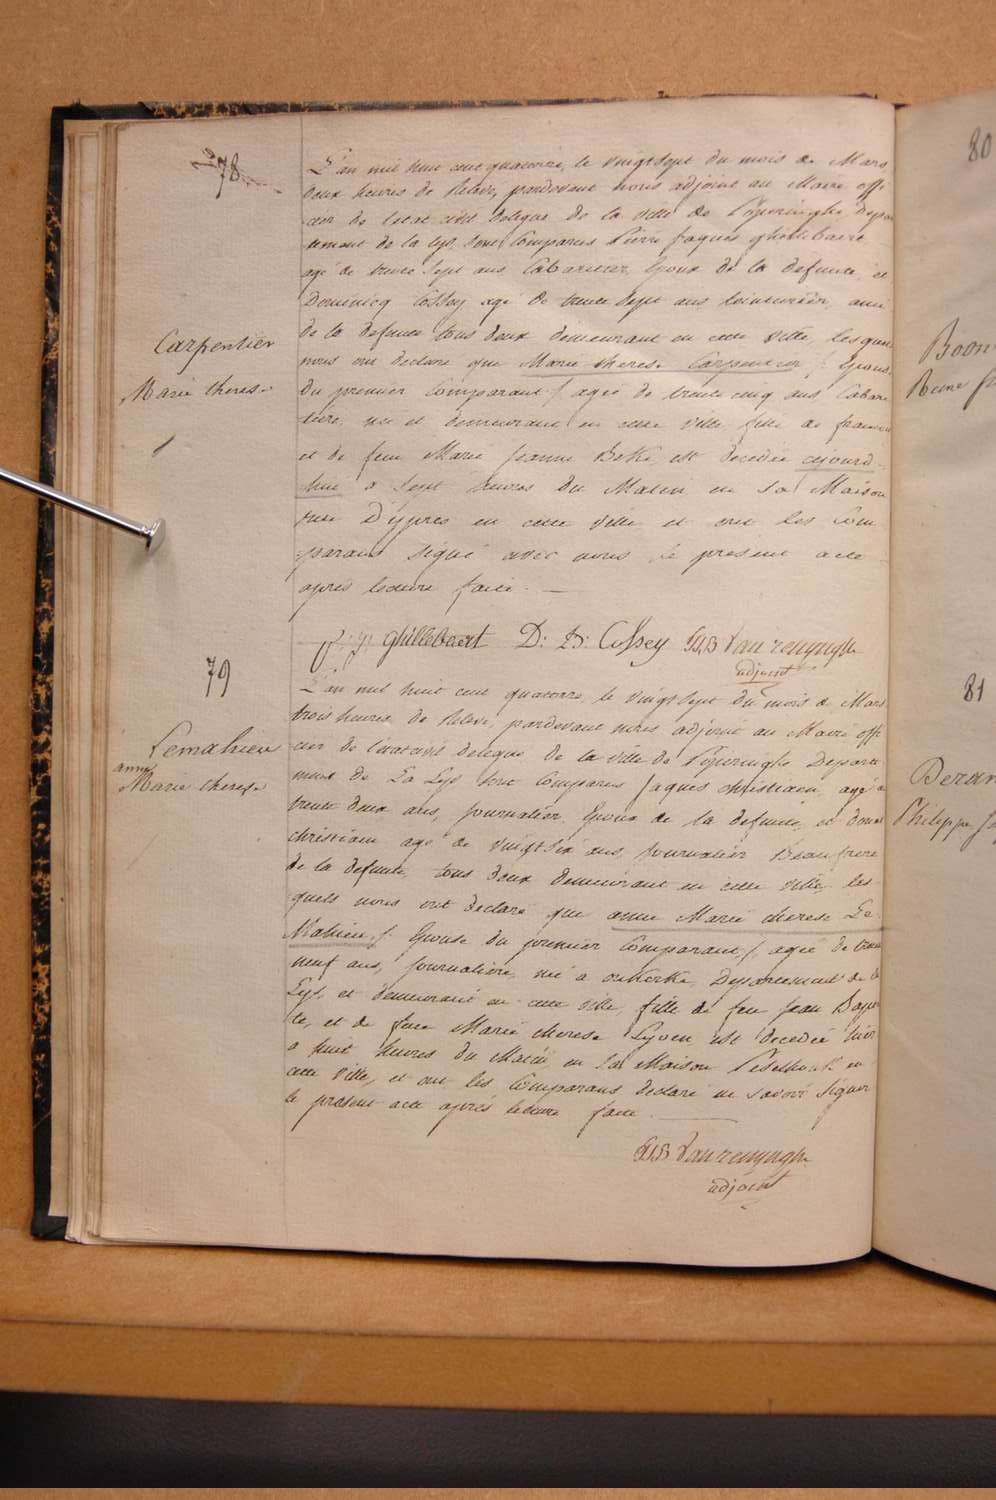 78
Carpentier
Marie therese
L'an mil huit cent quatorze, le vingtsept du mois de Mars
deux heures de relevé, pardevant nous adjoint au Maire offi
cier de l'etat civil delegué de la ville de Poperinghe Depar
tement de la Lys, sont Comparus Pierre Jaques Ghillebaert
agé de trente Sept ans Cabaretier, Epoux de la defunte, et
Dominicq Cossey agé de trente Sept ans teinturier, ami
de la defunte tous deux demeurant en cette Ville, lesquels
nous ont declaré que Marie therese Carpentier /: Epouse
du premier Comparant :/ agée de trente cinq ans Cabare
tiere, né et demeurant en cette Ville, fille de francois
et de feue Marie Jeanne Beke, est decedée cejourd
hui a Sept heures du Matin en Sa Maison
rue D'ypres en cette Ville et ont les Com
parans signé avec nous le présent acte
apres lecture faite. —
P: J: Ghillebaert D: B: Cossey VanRenynghe
adjoint
79
Lemahieu
anne
Marie therese
L'an mil huit cent quatorze, le vingtsept du mois de Mars
trois heures de relevé, pardevant nous adjoint au Maire offi
cier de l'etat civil delegué de la ville de Poperinghe Departe
ment de La Lys sont Comparus Jaques Christiaen, agé de
trente deux ans, Journalier, Epoux de la defunte, et
christiaen agé de vingtsix ans, Journalier Beaufrere
de la defunte, tous deux demeurant en cette Ville, les
quels nous ont declaré que anne Marie therese Le
Mahieu /: Epouse du premier Comparant :/ agée de trente
neuf ans, Journaliere, né a Departement de la
Lys, et demeurant en cette Ville, fille de feu Jean Bapte
te, et de feue Marie therese est decedée hier
a huit heures du Matin, en Sa Maison en
cette Ville, et ont les Comparans declaré ne Savoir Signer
le présent acte aprés lecture faite. —
VanRenynghe
adjoint
80
Boon
Reine
81
Deran
Philippe